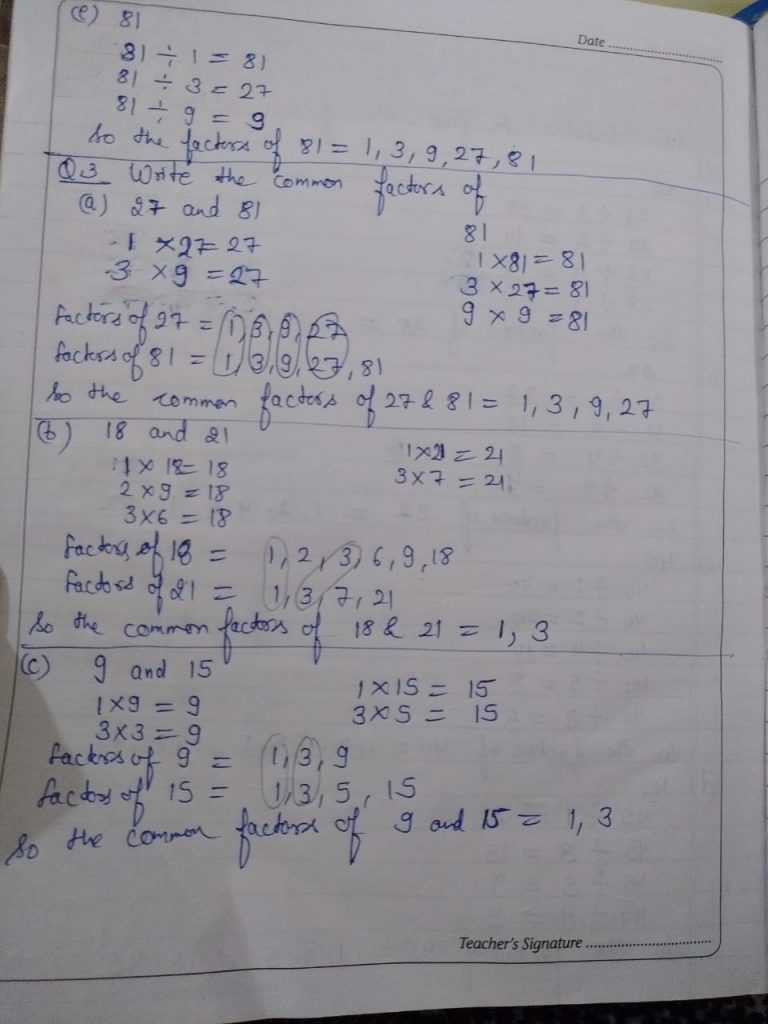 (e) 81
Date
81 ÷ 1 = 81
81 ÷ 3 = 27
81 ÷ 9 = 9
So the factors of 81 = 1, 3, 9, 27, 81
Q.3 Write the common factors of
(a) 27 and 81
81
1 × 27 = 27
1 × 81 = 81
3 × 9 = 27
3 × 27 = 81
9 × 9 = 81
factors of 27 = 1, 3, 9, 27
factors of 81 = 1, 3, 9, 27, 81
So the common factors of 27 & 81 = 1, 3, 9, 27
(b) 18 and 21
1 × 18 = 18
1 × 21 = 21
2 × 9 = 18
3 × 7 = 21
3 × 6 = 18
factors of 18 = 1, 2, 3, 6, 9, 18
factors of 21 = 1, 3, 7, 21
So the common factors of 18 & 21 = 1, 3
(c) 9 and 15
1 × 9 = 9
1 × 15 = 15
3 × 3 = 9
3 × 5 = 15
factors of 9 = 1, 3, 9
factors of 15 = 1, 3, 5, 15
So the common factors of 9 and 15 = 1, 3
Teacher's Signature